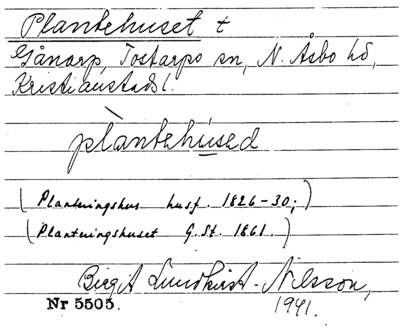 Plantehuset t
Gånarp, Tostarps sn, N. Åsbo hd,
Kristianstads l.
plàntehúsed
(Planteringshus husf. 1826-30;)
(Planteringshuset G.St. 1861.)
Birgit Lundkvist-Nilsson,
Nr 5505. 1941.